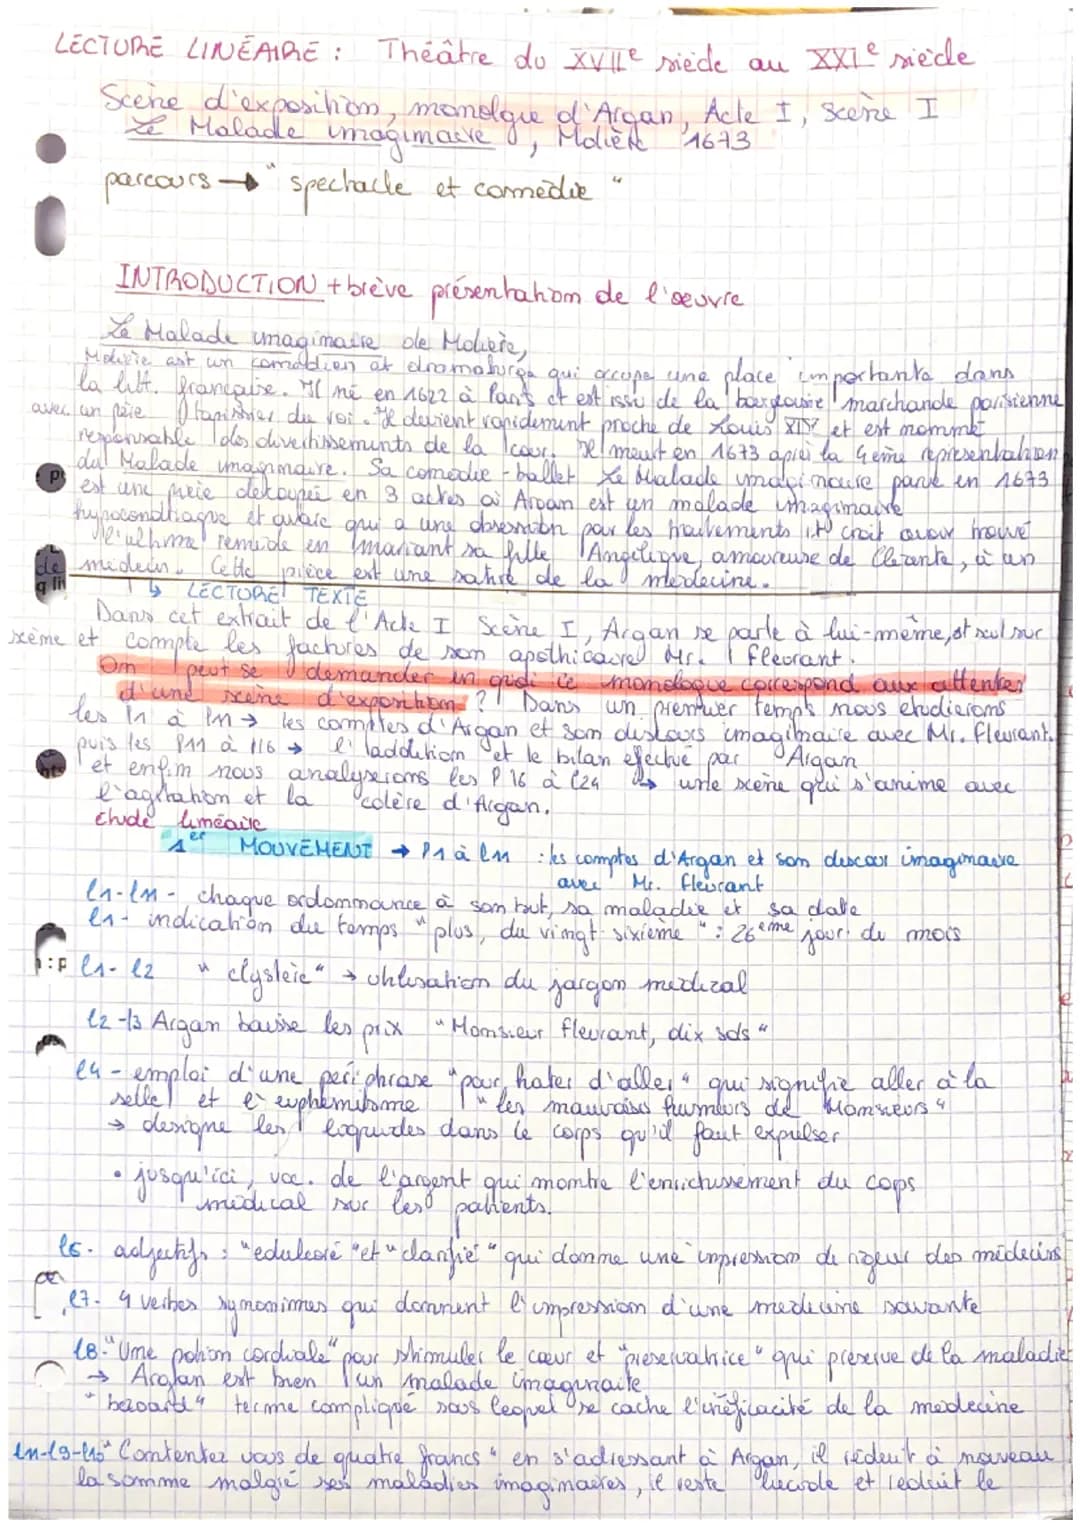 LECTURE LINÉAIRE : Théâtre du XVIIe siècle au XXIe siècle
Scène d'exposition, monolgue d'Argan, Acte I, Scène I
Le Malade imaginaire, Molière 1673
parcours → "spectacle et comédie"
INTRODUCTION + brève présentation de l'œuvre
Le Malade imaginaire de Molière,
Molière est un comédien et dramaturge qui occupe une place importante dans
la litt. française. Il né en 1622 à Paris et est issu de la bourgeoisie marchande parisienne
avec un père tapissier du roi. Il devient rapidement proche de Louis XIV et est nommé
responsable des divertissements de la cour. Il meurt en 1673 après la 4eme représentation
du Malade imaginaire. Sa comédie-ballet Le Malade imaginaire parue en 1673
est une pièce découpée en 3 actes où Argan est un malade imaginaire
hypocondriaque et avare qui a une obsession pour les traitements, il croit avoir trouvé
l'ultime remède en mariant sa fille Angélique, amoureuse de Cléante, à un
médecin. Cette pièce est une satire de la médecine.
↳ LECTURE TEXTE
Dans cet extrait de l'Acte I Scène I, Argan se parle à lui-même, est seul sur
scème et compte les factures de son apothicaire Mr. Fleurant.
On peut se demander en quoi ce monologue correspond aux attentes
d'une scène d'exposition ? Dans un premier temps nous étudierons
les l1 à l11 → les comptes d'Argan et son discours imaginaire avec Mr. Fleurant.
puis les l11 à l16 → l'addition et le bilan effectué par Argan
et enfim nous analyserons les l 16 à l24 ↳ une scène qui s'anime avec
l'agitation et la colère d'Argan.
Etude linéaire
1er MOUVEMENT → l1 à l11 : les comptes d'Argan et son discour imaginaire
avec Mr. Fleurant
l1-l11 - chaque ordonnance à son but, sa maladie et sa date
l1- indication du temps "plus, du vingt-sixième" : 26ème jour du mois
l1- l2 "clystère" → utilisation du jargon médical
l2-l3 Argan baisse les prix "Monsieur Fleurant, dix sols"
l4 - emploi d'une périphrase "pour hâter d'aller" qui signifie aller à la
selle et l'euphémisme "les mauvaises humeurs de Monsieurs"
→ désigne les liquides dans le corps qu'il faut expulser
• jusqu'ici, voc. de l'argent qui montre l'enrichissement du corps
médical sur les patients.
l6- adjectifs : "édulcoré" et "clarifié" qui donne une impression de rigueur des médecins
l7- 4 verbes synonimes qui donnent l'impression d'une médecine savante
l8- "Une potion cordiale" pour stimuler le cœur et "préservatrice" qui préserve de la maladie
→ Argan est bien un malade imaginaire
"bézoard" terme compliqué sous lequel se cache l'inéficacité de la médecine
l9-l10 "Contentez vous de quatre francs" en s'adressant à Argan, il réduit à nouveau
la somme malgré ses maladies imaginaires, il reste lucide et réduit le